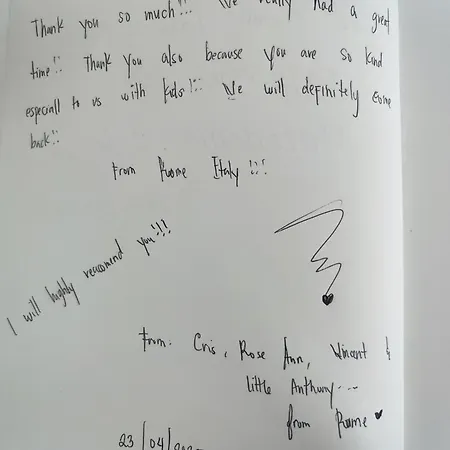 Thank you so much!!! We really had a great
time!! Thank you also because you are so kind
especiall to us with kids!!! We will definitely come
back!!
From Rome Italy!!!
I will highly recommend you!!!
From: Cris, Rose Ann, Vincent &
little Anthony...
from Rome
23/04/